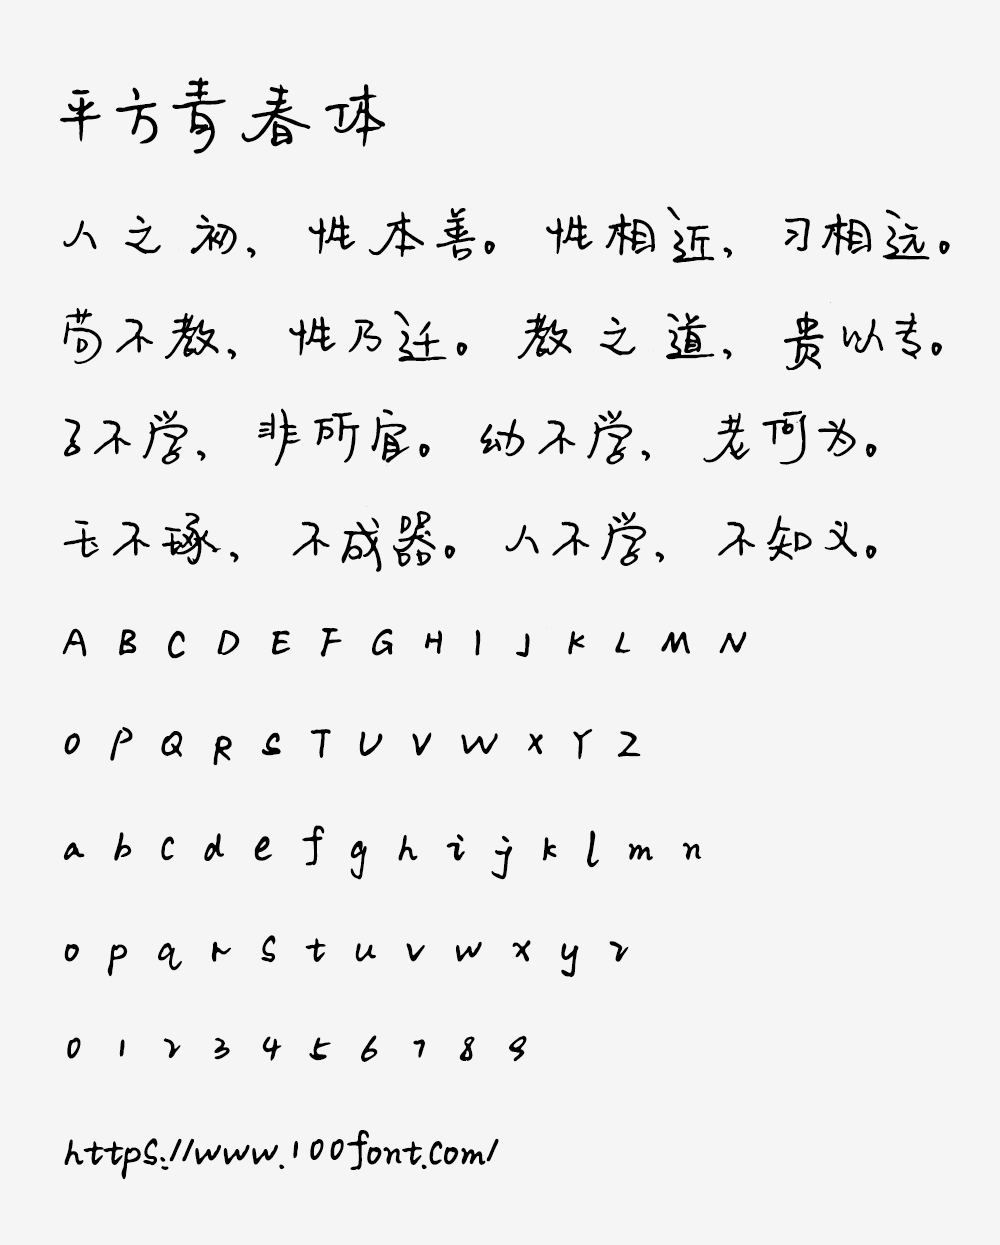 平方青春体
人之初，性本善。性相近，习相远。
苟不教，性乃迁。教之道，贵以专。
子不学，非所宜。幼不学，老何为。
玉不琢，不成器。人不学，不知义。
A B C D E F G H I J K L M N
O P Q R S T U V W X Y Z
a b c d e f g h i j k l m n
o p q r s t u v w x y z
0 1 2 3 4 5 6 7 8 9
https://www.100font.com/